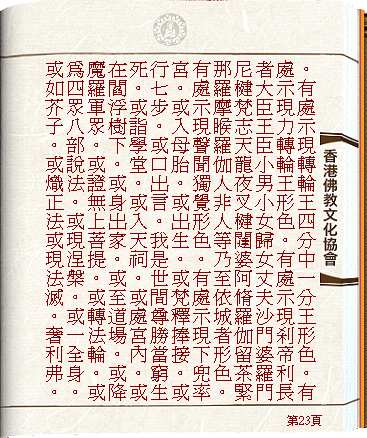 。有處示現轉輪王四分中一分王形色。有
處示現力轉輪王形色。有處示現剎帝利長
者大臣王臣小男小女歸女丈夫沙門婆羅門
尼健梵志天龍夜叉健闥婆阿脩羅伽留茶緊
那羅摩睺羅伽人非人等乃至依城者形色。
有處示現聲聞獨覺形色。有處示現下兜率
宮。或入母胎。或出生。或梵釋捧接。或
行七步。或口出言。我是世間尊勝當窮生
死。或詣學堂。或入天祠。或處宮內。或
在閻浮樹下。或身出家。或至道場。或降
魔羅軍眾。或證無上菩提。或轉法輪。或
為四眾八部說法。或現涅槃。或一全身。
或如芥子。或熾正法或現法滅。奢利弗。
香港佛教文化協會
第23頁